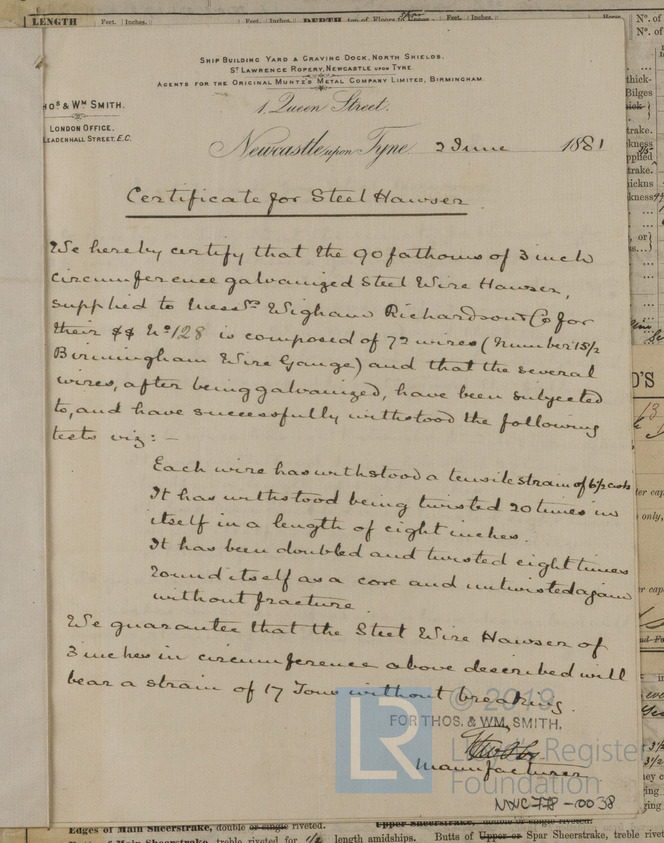 LENGTH Feet. Inches. Feet. Inches. DEPTH top of Floors to Upper Feet. Inches.
Nº. of
Nº. of
SHIP BUILDING YARD & GRAVING DOCK, NORTH SHIELDS.
ST LAWRENCE ROPERY, NEWCASTLE UPON TYNE
AGENTS FOR THE ORIGINAL MUNTZ'S METAL COMPANY LIMITED, BIRMINGHAM.
HOS & WM SMITH.
LONDON OFFICE,
LEADENHALL STREET, E.C.
1, Queen Street.
Newcastle upon Tyne 2 June 1881
Certificate for Steel Hawser
We hereby certify that the 90 fathoms of 3 inch
circumference galvanized Steel Wire Hawser,
supplied to Messrs Wigham Richardson & Co for
their SS No 128 is composed of 72 wires (number 15½
Birmingham Wire Gauge) and that the several
wires, after being galvanized, have been subjected
to, and have successfully withstood the following
tests viz: –
Each wire has withstood a tensile strain of 6½ cwts
It has withstood being twisted 20 times in
itself in a length of eight inches.
It has been doubled and twisted eight times
round itself as a core and untwisted again
without fracture.
We guarantee that the Steel Wire Hawser of
3 inches in circumference above described will
bear a strain of 17 Tons without breaking.
FOR THOS. & WM. SMITH.
Manufacturer
© 2019
LR
Lloyd's Register
Foundation
NWC778-0038
Edges of Main Sheerstrake, double or single riveted. Upper Sheerstrake, double or single riveted.
length amidships. Butts of Upper or Spar Sheerstrake, treble rivet